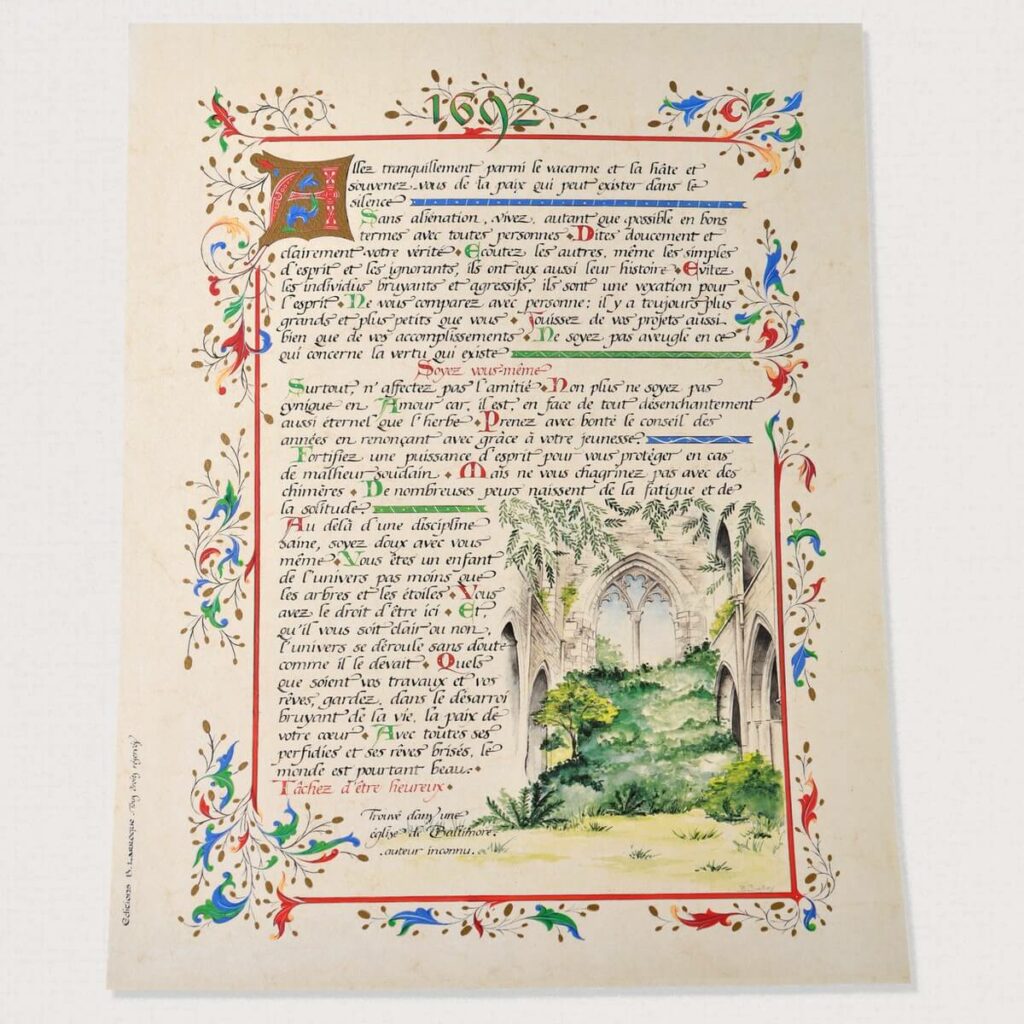 1692
Allez tranquillement parmi le vacarme et la hâte et
souvenez-vous de la paix qui peut exister dans le
silence
Sans alienation, vivez, autant que possible en bons
termes avec toutes personnes • Dites doucement et
clairement votre vérité • Ecoutez les autres, même les simples
d'esprit et les ignorants, ils ont eux aussi leur histoire • Evitez
les individus bruyants et agressifs, ils sont une vexation pour
l'esprit • Ne vous comparez avec personne: il y a toujours plus
grands et plus petits que vous • Jouissez de vos projets aussi
bien que de vos accomplissements • Ne soyez pas aveugle en ce
qui concerne la vertu qui existe
Soyez vous-même
Surtout, n'affectez pas l'amitié • Non plus ne soyez pas
cynique en Amour car, il est, en face de tout désenchantement
aussi éternel que l'herbe • Prenez avec bonté le conseil des
années en renonçant avec grâce à votre jeunesse.
Fortifiez une puissance d'esprit pour vous protéger en cas
de malheur soudain • Mais ne vous chagrinez pas avec des
chimères • De nombreuses peurs naissent de la fatigue et de
la solitude
Au delà d'une discipline
saine, soyez doux avec vous
même • Vous êtes un enfant
de l'univers pas moins que
les arbres et les étoiles • Vous
avez le droit d'être ici • Et,
qu'il vous soit clair ou non,
l'univers se déroule sans doute
comme il le devait • Quels
que soient vos travaux et vos
rêves, gardez, dans le désarroi
bruyant de la vie, la paix de
votre cœur • Avec toutes ses
perfidies et ses rêves brisés, le
monde est pourtant beau. •
Tâchez d'être heureux •
Trouvé dans une
église de Baltimore.
.auteur inconnu.
Editions B. LARROQUE Tous droits réservés